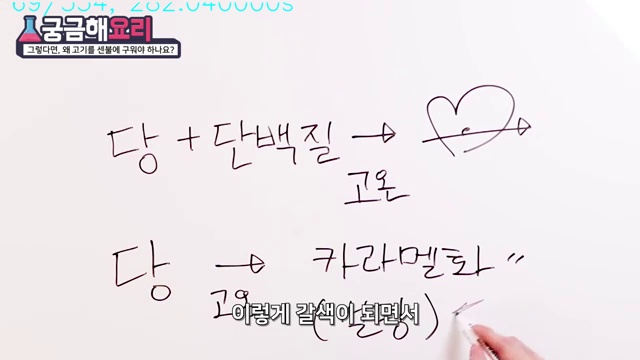 69/334, 282.040000s
궁금해요리
그렇다면, 왜 고기를 센불에 구워야 하나요?
당 + 단백질 →
고온
당 → 카라멜화 〃
고온
이렇게 갈색이 되면서